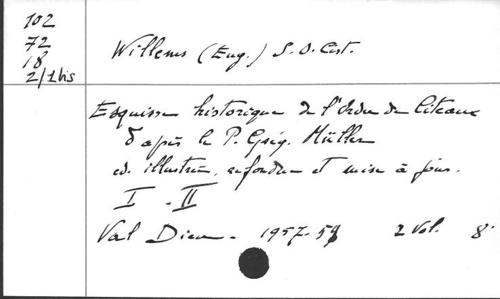 102
72
18
2/1bis
Willems (Eug.) S. O. Cist.
Esquisse historique de l'Ordre de Citeaux
d'après le P. Grég. Müller
ed. illustrée, refondue et mise à jour.
I - II
Val Dieu - 1957-58 2 Vol. 8°